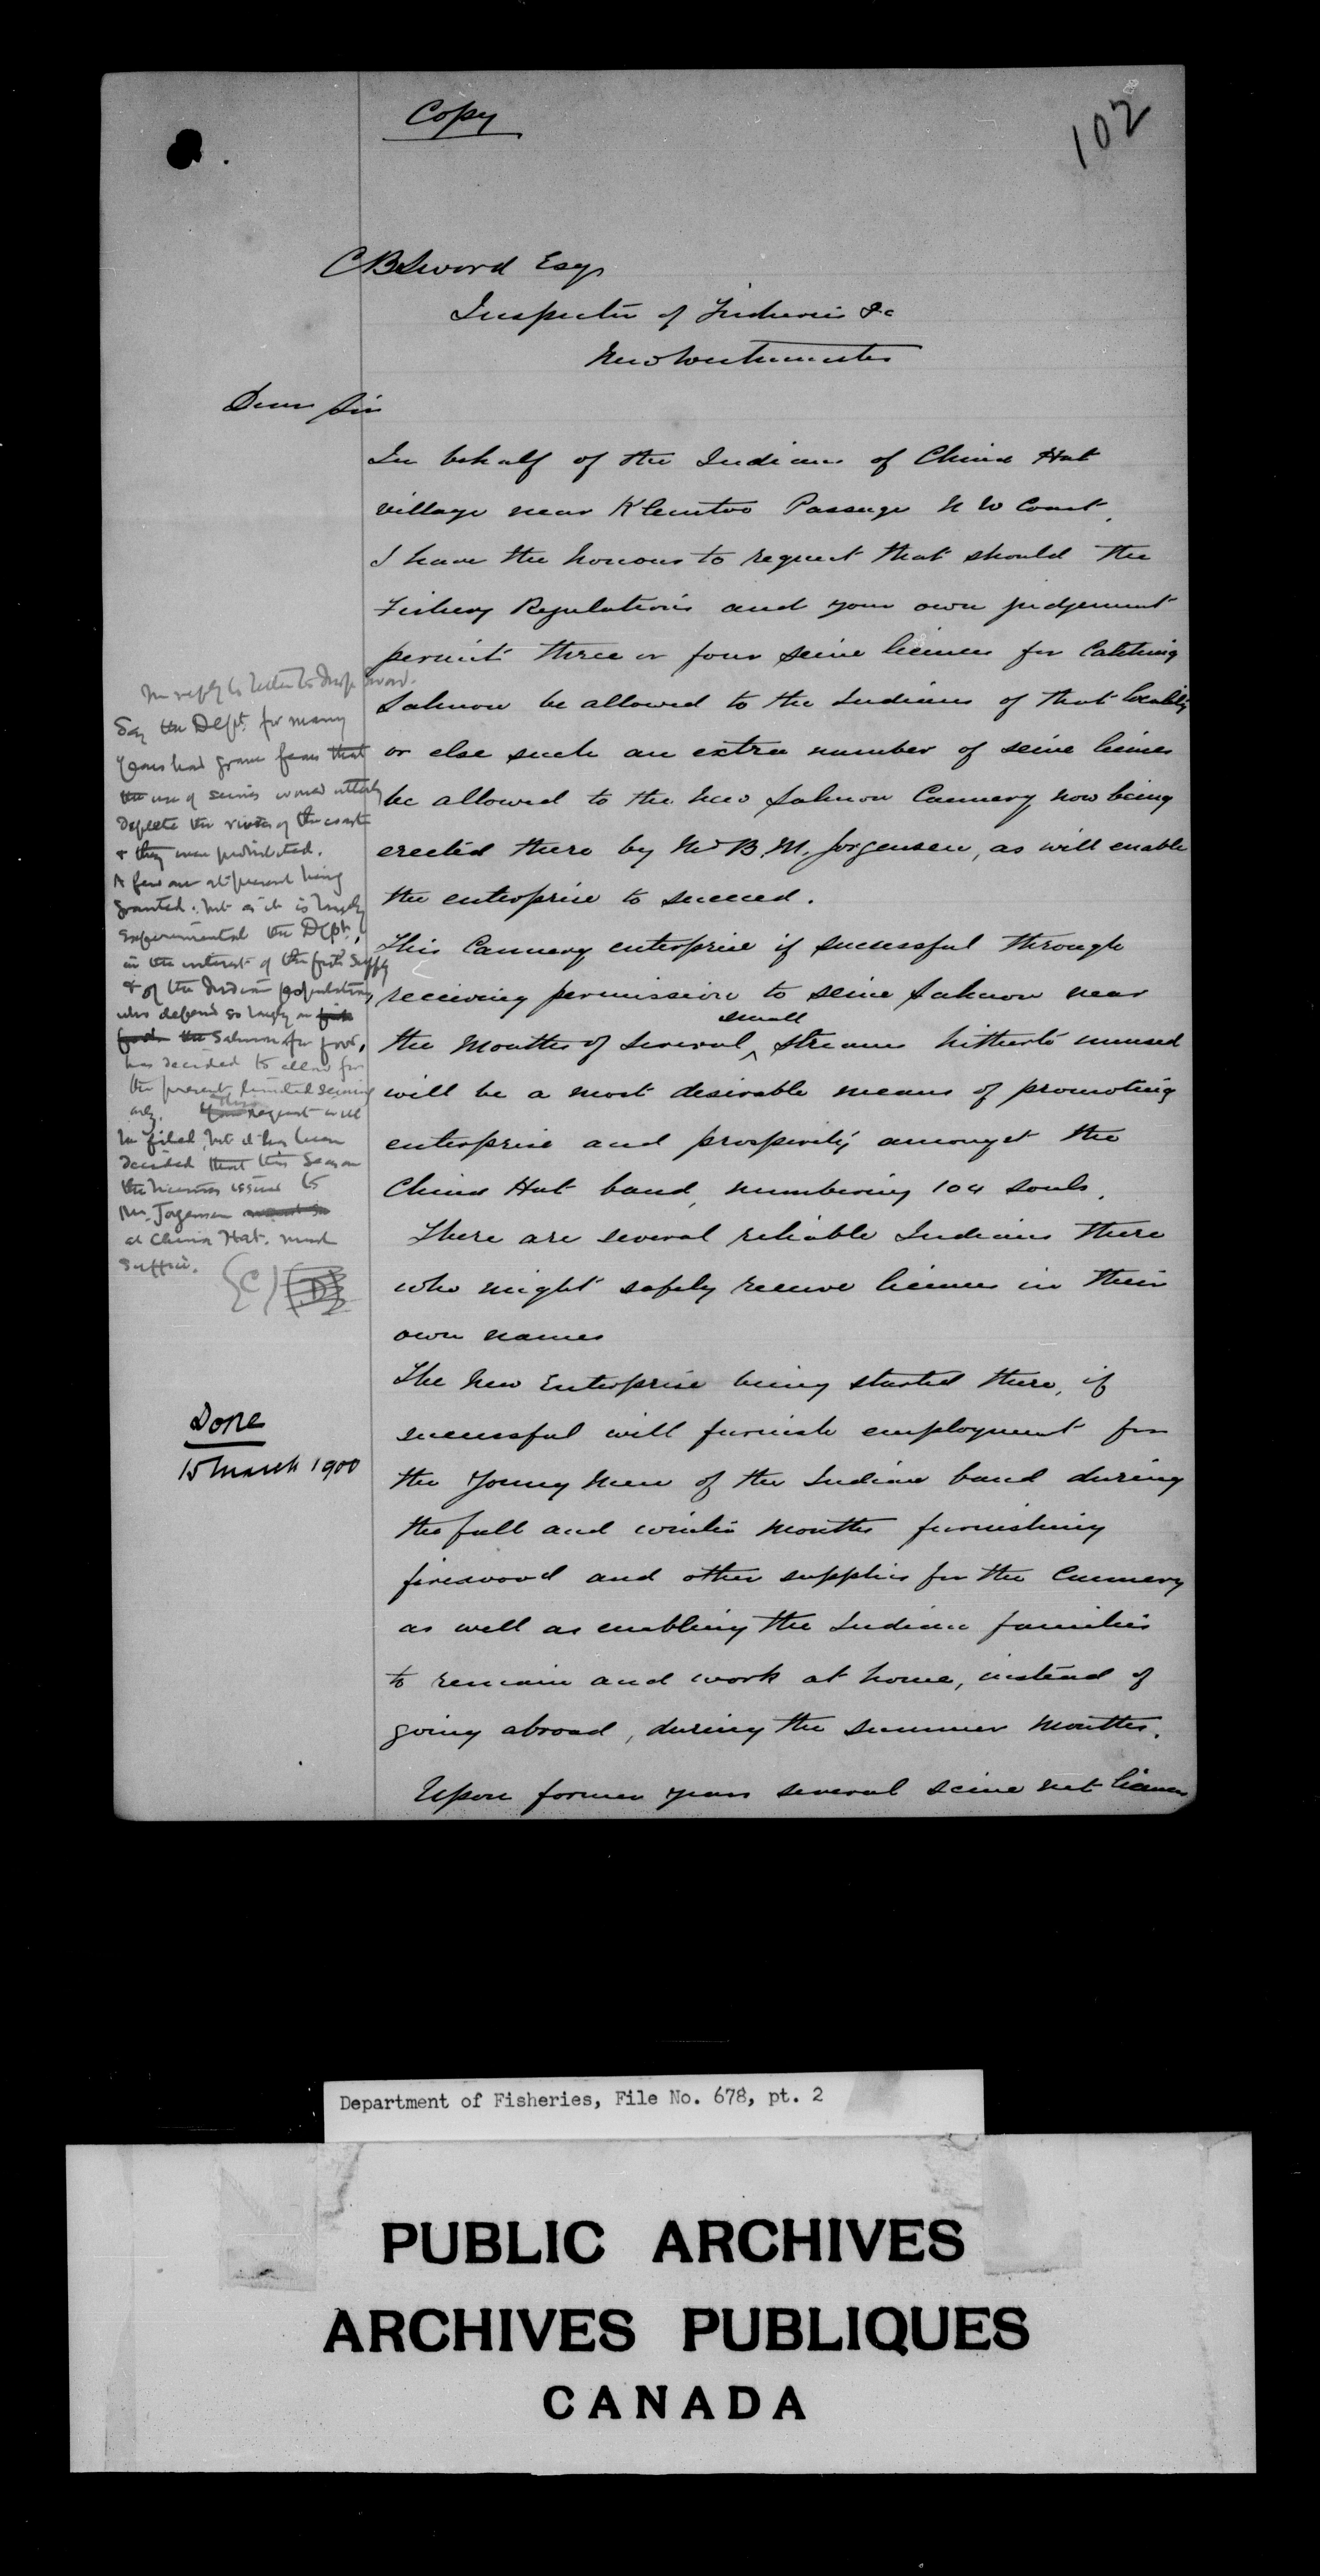 Copy
102
C B Sword Esqr
Inspector of Fisheries &c
New Westminster
Dear Sir
In behalf of the Indians of China Hat
village near Klemtoo Passage N W Coast,
I have the honour to request that should the
Fishery Regulations and your own judgement
permit three or four seine licenses for Catching
Salmon be allowed to the Indians of that locality
or else such an extra number of seine licenses
be allowed to the new Salmon Cannery now being
erected there by Mr B. M. Jorgensen, as will enable
the enterprise to succeed.
This Cannery enterprise if successful through
receiving permission to seine Salmon near
the Mouths of several small streams hitherto unused
will be a most desirable means of promoting
enterprise and prosperity amongst the
China Hat band, numbering 104 souls.
There are several reliable Indians there
who might safely receive licenses in their
own names
The new Enterprise being started there, if
successful will furnish employment for
the Young Men of the Indian band during
the fall and winter Months furnishing
firewood and other supplies for the Cannery
as well as enabling the Indian families
to remain and work at home, instead of
going abroad, during the summer Months.
Upon former years several seine net licenses
In reply to letter to Insp Sword.
Say the Dept. for many
years had grave fears that
the use of seines would utterly
deplete the rivers of the coast
& they were prohibited.
A few are at present being
granted. but as it is largely
experimental the Dept,
in the interest of the fish supply
& of the Indian population,
who depend so largely on fish
food the Salmon for food,
has decided to allow for
the present limited seining
only. Your This request will
be filed, but it has been
decided that this Season
the licenses issued to
Mr. Jorgensen
at China Hat. must
suffice.
Done
15 March 1900
Department of Fisheries, File No. 678, pt. 2
PUBLIC ARCHIVES
ARCHIVES PUBLIQUES
CANADA